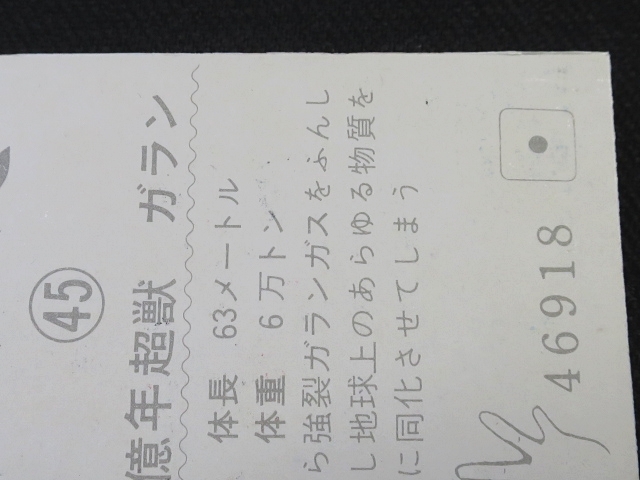 ㊺
億年超獣 ガラン
体長 63メートル
体重 6万トン
ら強裂ガランガスをふんし
し地球上のあらゆる物質を
に同化させてしまう
46918